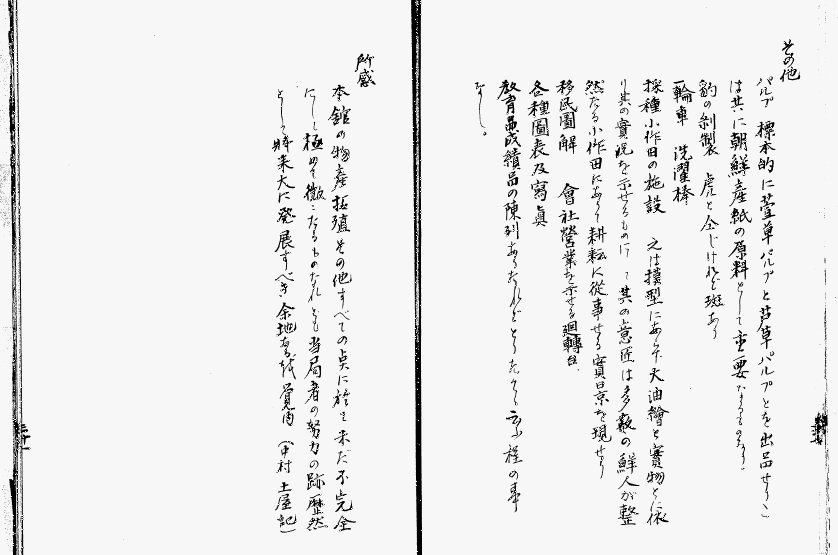 その他
パルプ 標本的に萱草パルプと芦草パルプとを出品せり
は共に朝鮮産紙の原料として重要なるものなり。
豹の剥製 虎と仝じけれど斑あり
一輪車 洗濯棒
採種小作田の施設 之は模型にあらず大油繪と實物とに依
り其の實況を示せるものにて其の意匠は多数の鮮人が整
然たる小作田にありて耕耘に從事せる實景を現せり
移民圖解 會社營業を示せる廻轉台
各種圖表及寫真
教育品成績品の陳列ありたれどとりたてゝ云ふ程の事
なし。
所感
本館の物産拓殖その他すべての点に於て未だ不完全
にして極めて微々たるものなれども当局者の努力の跡歴然
として将来大に発展すべき余地あるを覚ゆ (中村土屋記)